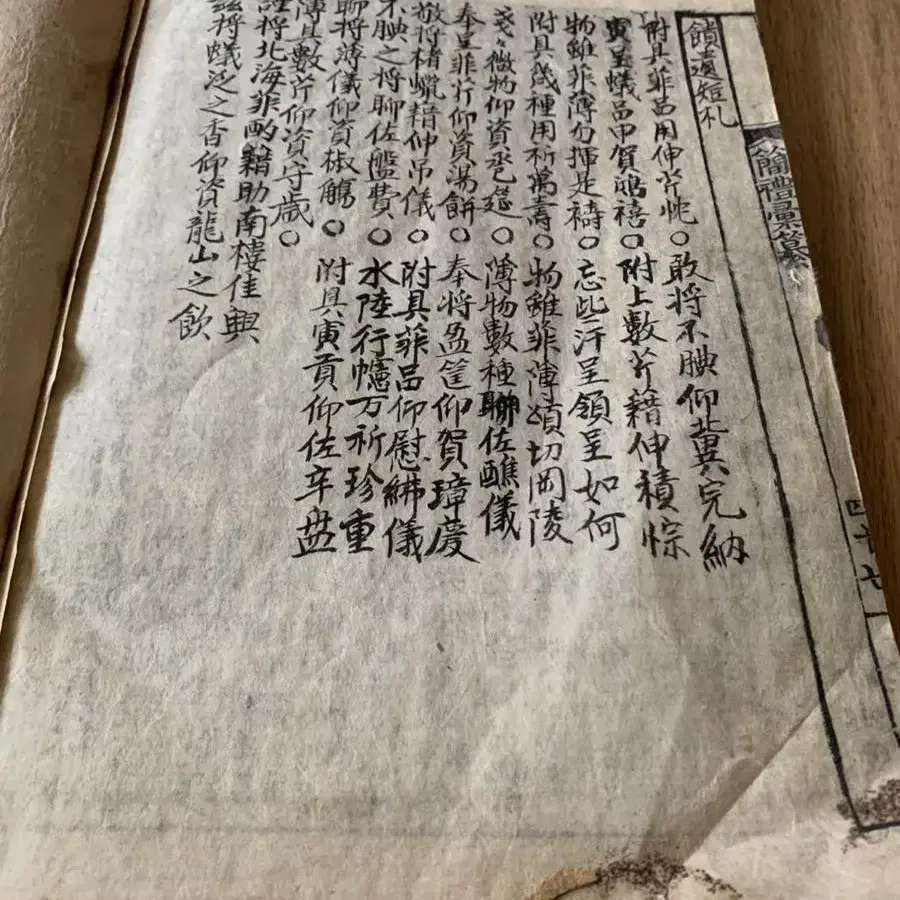 饋遺短札
附具菲品用伸芹忱○敢將不腆仰冀完納
寅呈蟻品申賀鴻禧○附上數芹藉伸積悰
物雖菲薄勿揮是禱○忘些汗呈領呈如何
附具幾種用祈萬壽○物雖菲薄頌切岡陵
戔々微物仰資爸筵○薄物數種聊佐醮儀
奉呈菲芹仰資湯餅○奉將盈筐仰賀璋慶
敬將楮蠟藉伸吊儀○附具菲品仰慰紼儀
不腆之將聊佐盤費○水陸行幰万祈珍重
聊將薄儀仰資椒觴○附具寅貢仰佐辛盘
薄具數芹仰資守歲○
謹將北海菲酌藉助南樓佳興
茲將蟻泛之香仰資龍山之飲
簡禮彙纂
四十七